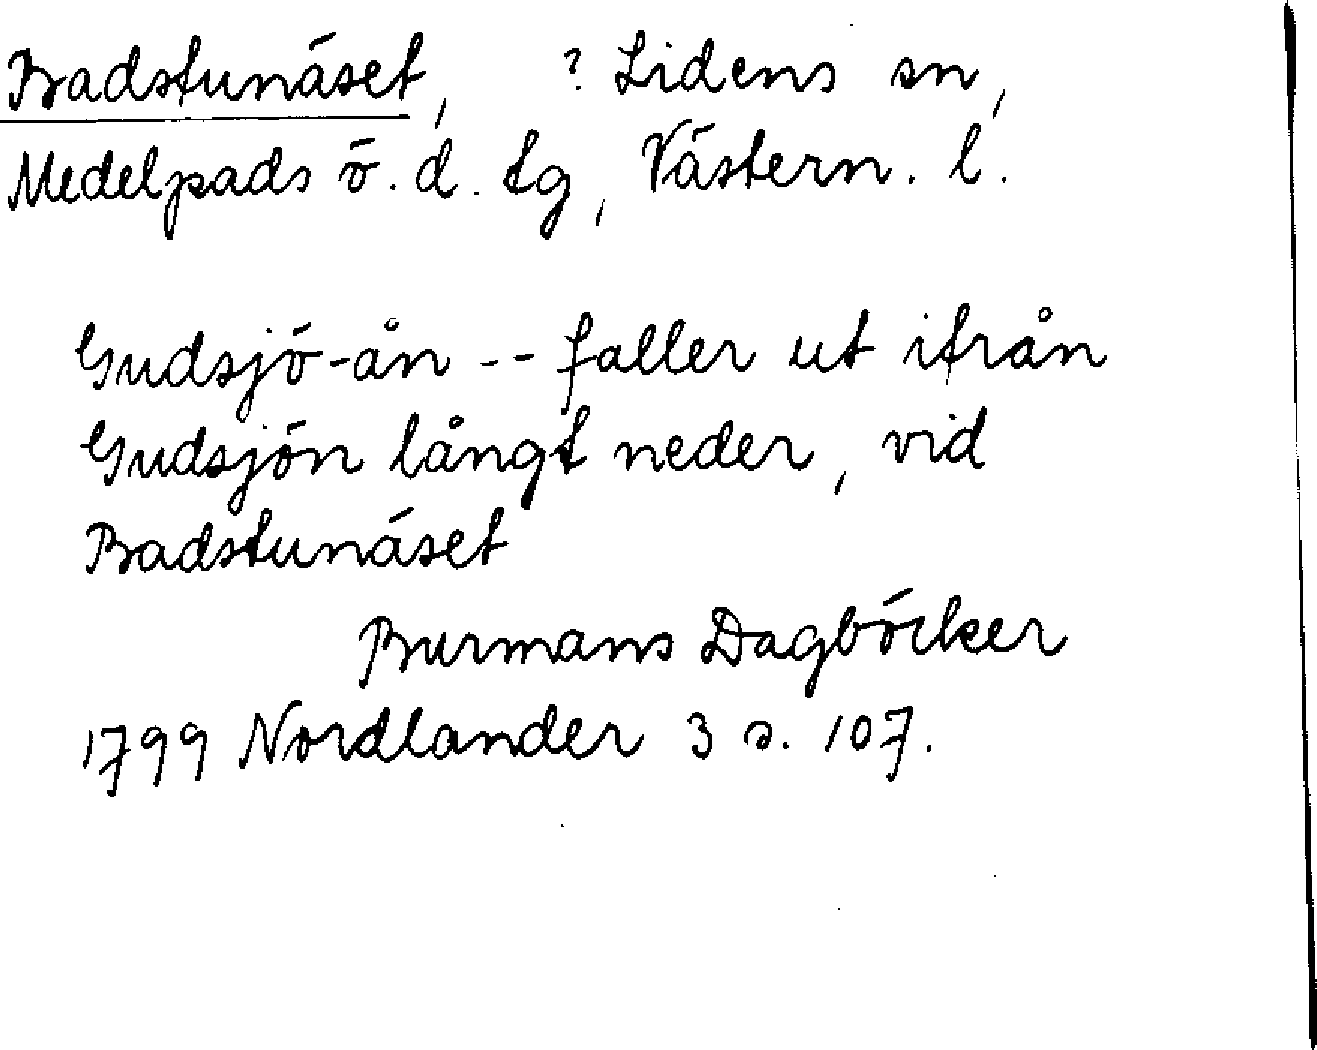 Badstunäset, ? Lidens sn,
Medelpads ö. d. tg, Västern. l.
Gudsjö-ån -- faller ut ifrån
Gudsjön långt neder, vid
Badstunäset
Burmans Dagböcker
1799 Nordlander 3 s. 107.